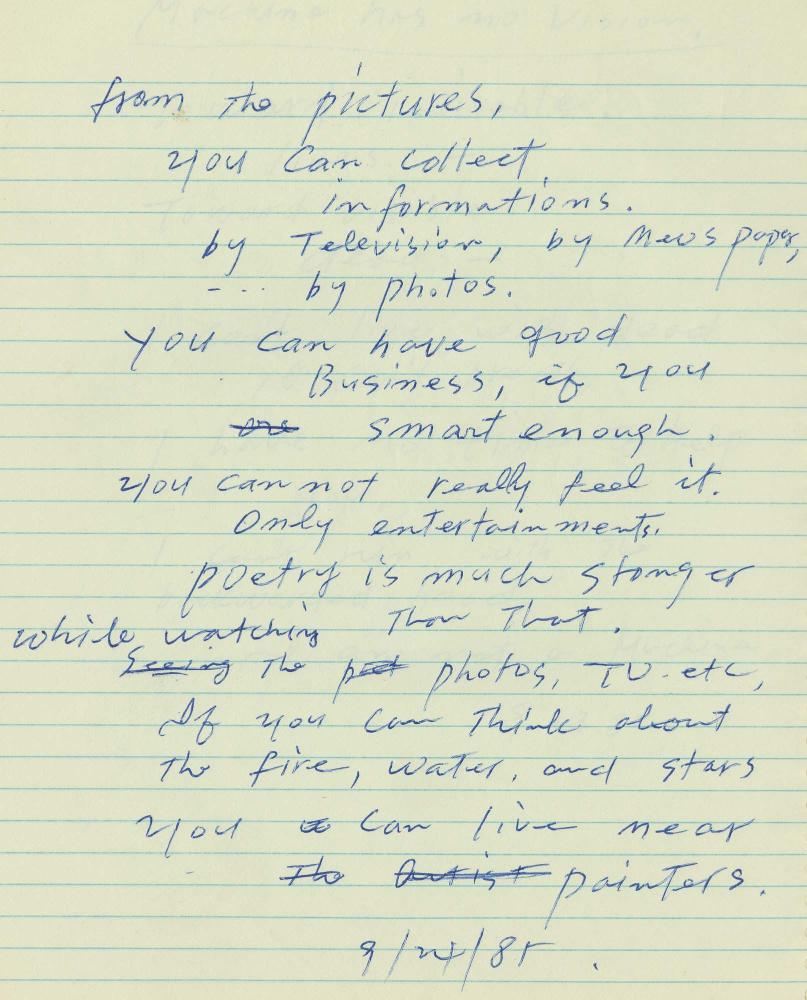 from the pictures,
you can collect
informations.
by Television, by Newspaper,
- ... by photos.
You can have good
Business, if you
are smart enough.
you can not really feel it.
Only entertainments.
poetry is much stonger
Than That.
while watching
Seeing The pict photos, TV. etc,
If you can Think about
the fire, water, and stars
you can live near
The Artist painters.
9/24/85.